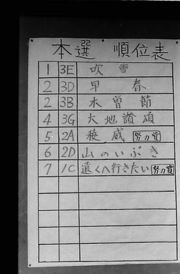 本選 順位表
1 3E 吹雪
2 3D 早春
2 3B 木曽節
4 3G 大地讃頌
5 2A 努力賞
6 2D 山のいぶき
7 1C 遠くへ行きたい 努力賞